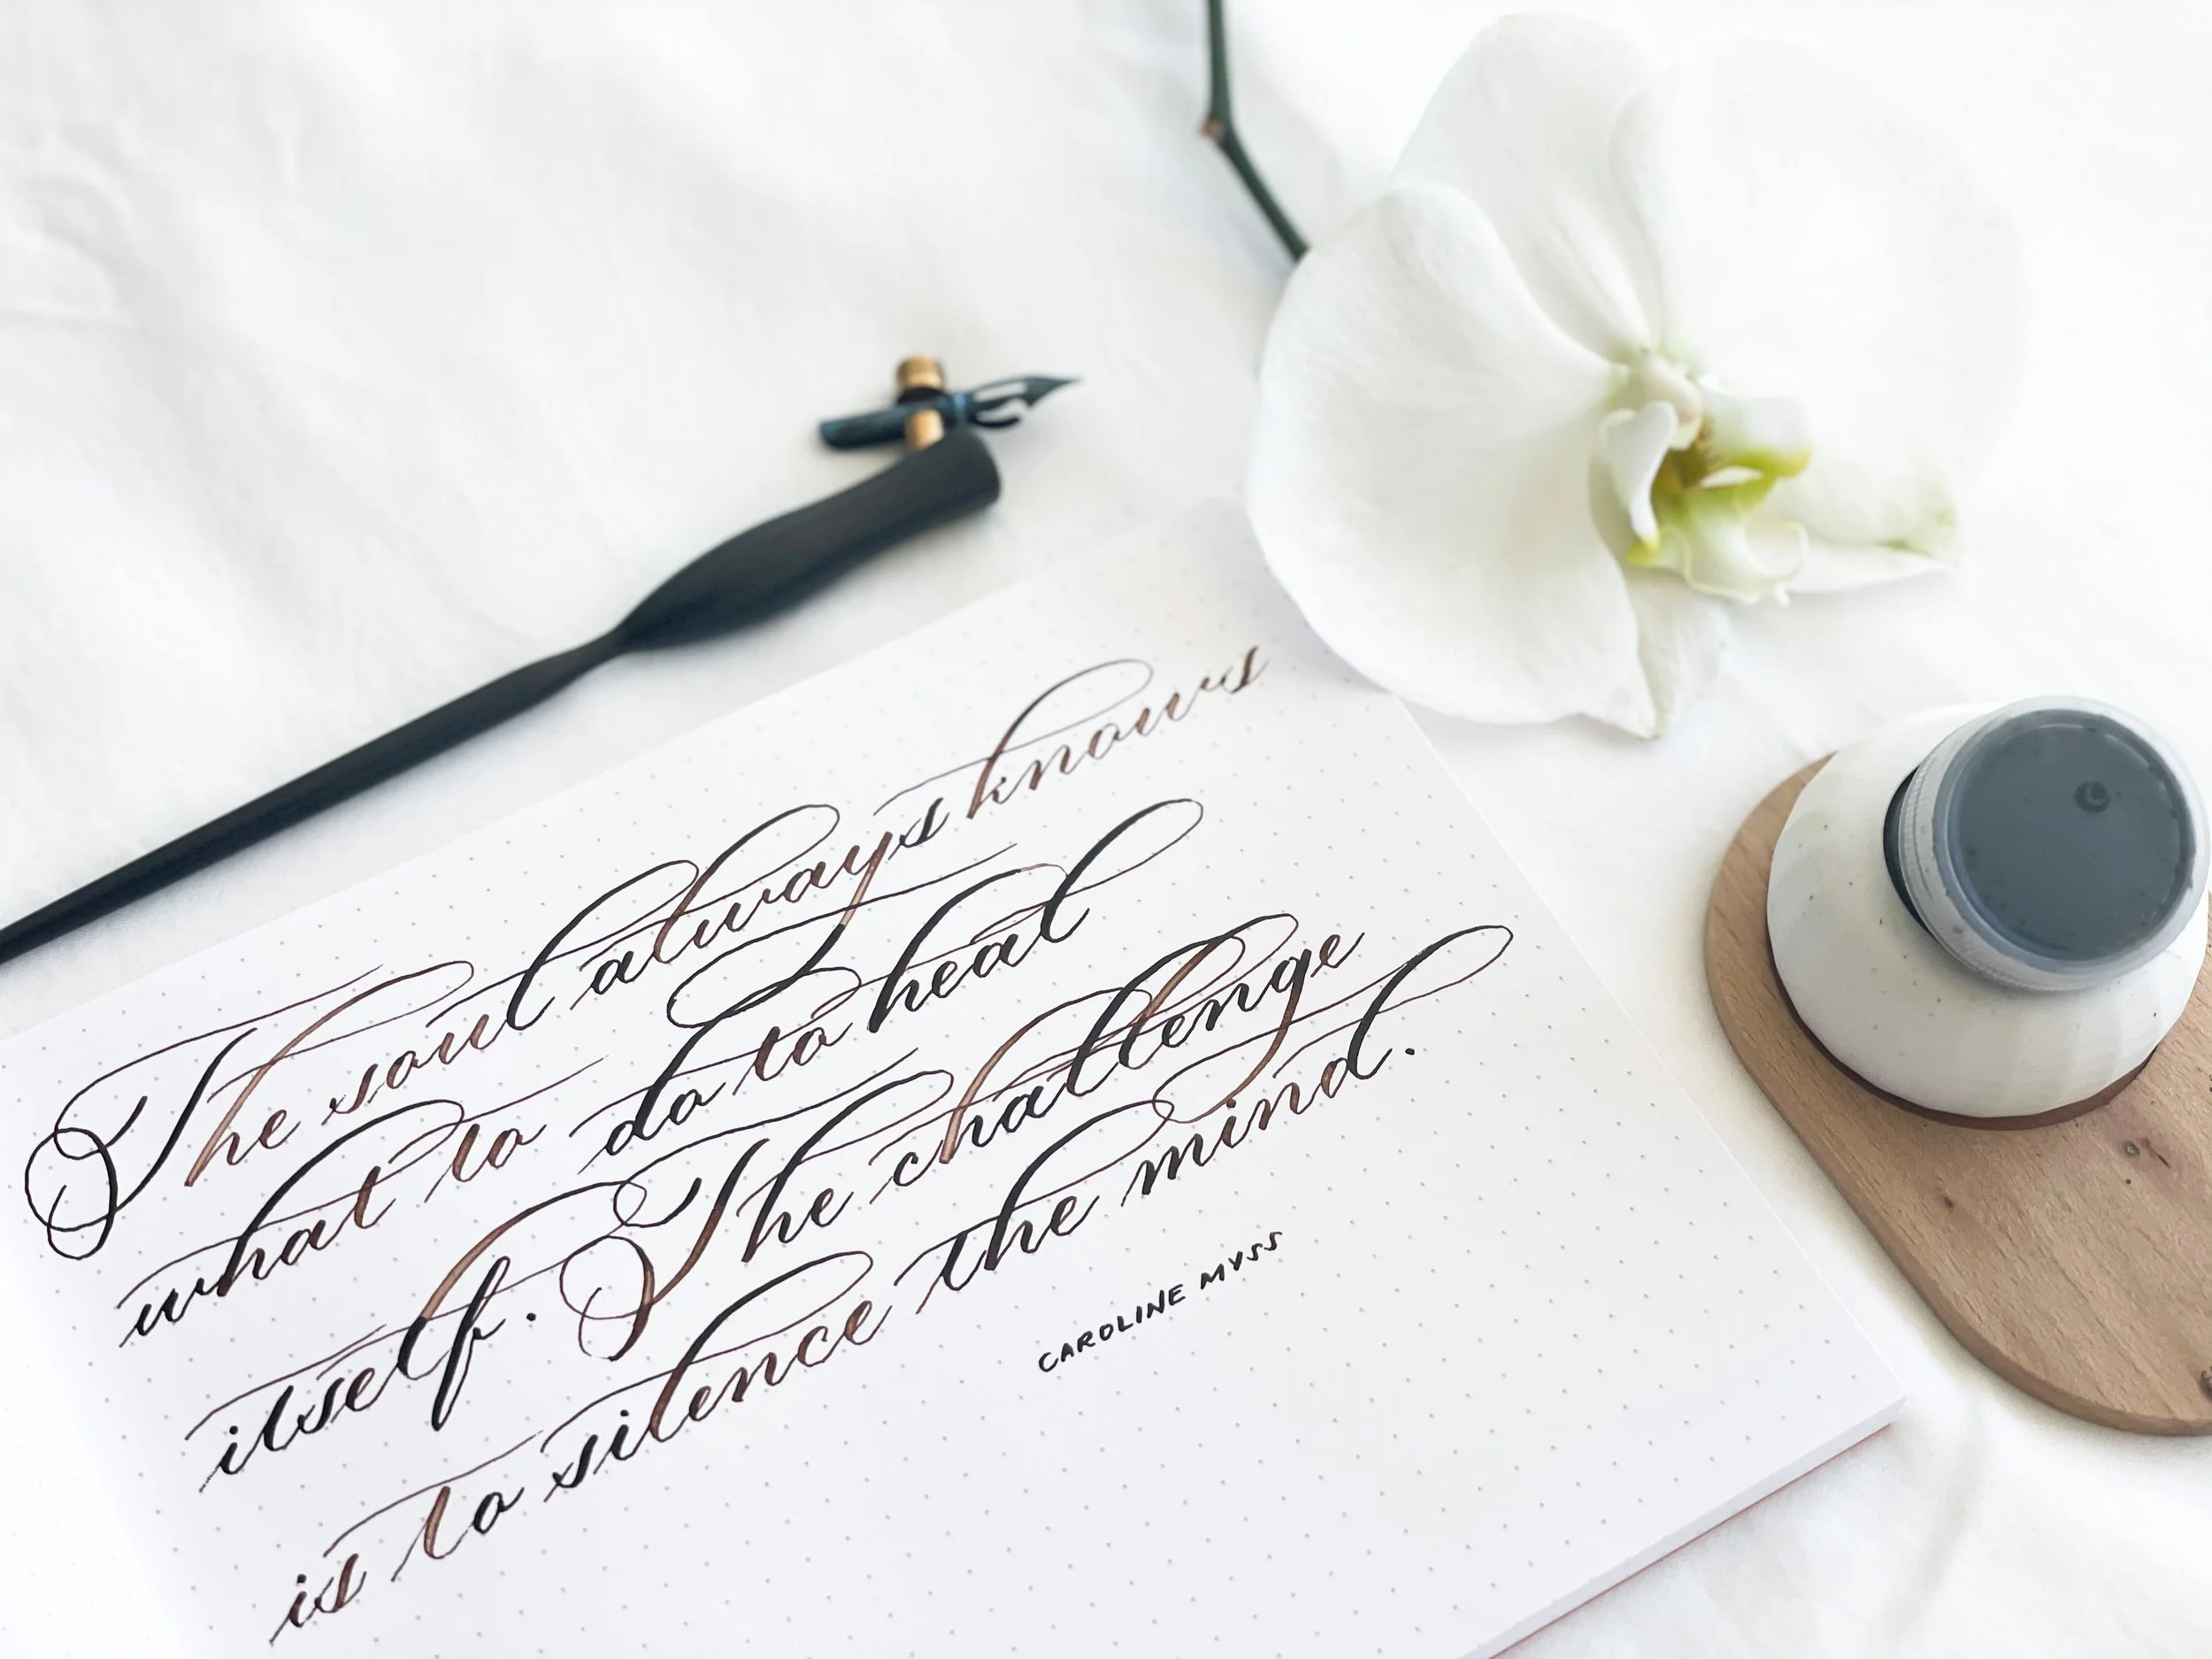 The soul always knows
what to do to heal
itself. The challenge
is to silence the mind.
CAROLINE MYSS